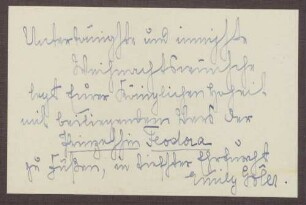 Untertänigste und innigste
Weihnachtswünsche
legt Eurer Königlichen Hoheit
mit beiliegendem Vers der
Prinzessin Feodora
zu Füßen, in tiefster Ehrfurcht
Emily Göler.